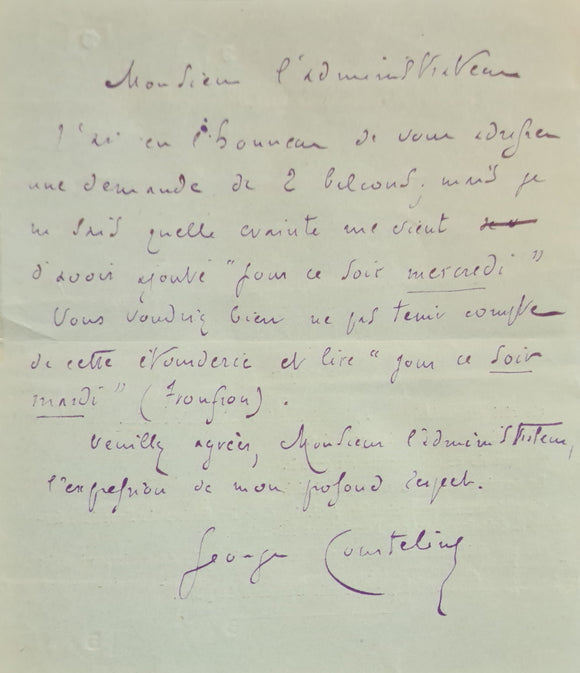 Monsieur l'administrateur
J'ai eu l'honneur de vous adresser
une demande de 2 balcons, mais je
ne sais quelle crainte me vient
d'avoir ajouté "pour ce soir mercredi"
Vous voudrez bien ne pas tenir compte
de cette étourderie et lire "pour ce soir
mardi" (Froufrou).
Veuillez agréer, Monsieur l'administrateur,
l'expression de mon profond respect.
Georges Courteline